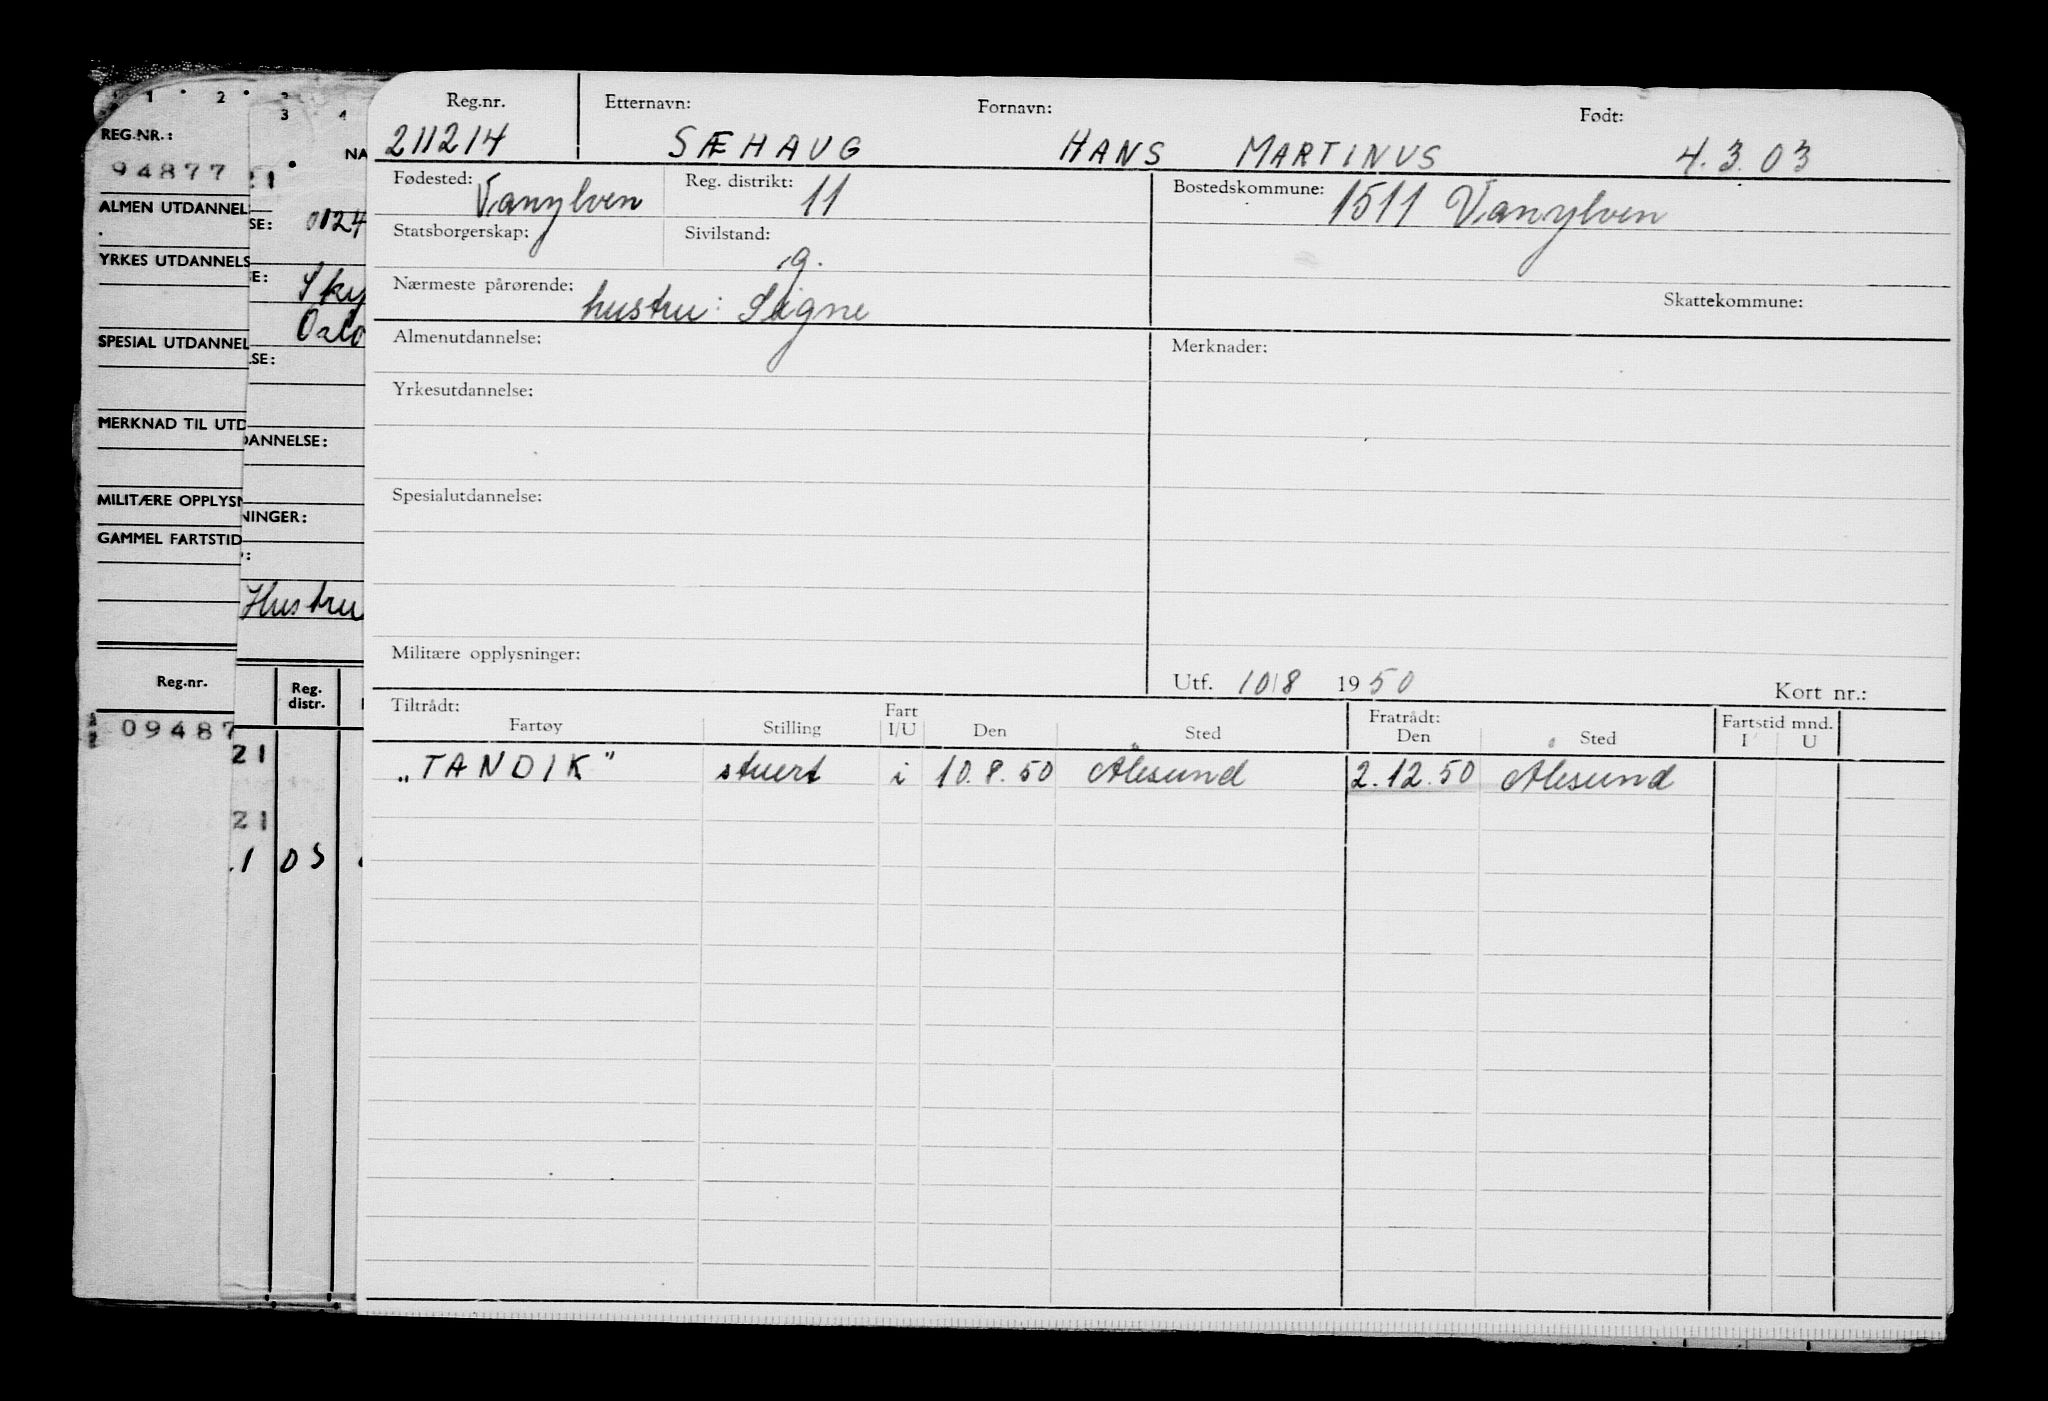 1 2 3
REG.NR.:
94877
ALMEN UTDANNEL
YRKES UTDANNELS
SPESIAL UTDANNEL
MERKNAD TIL UTD
MILITÆRE OPPLYSN
GAMMEL FARTSTID
Reg.nr.
09487
3 4
NA
21
SE: 0124
E: Sky
Oslo
LSE:
DANNELSE:
NINGER:
Hustru
Reg.
distr.
21
21
.1 03
Reg.nr. Etternavn: Fornavn: Født:
211214 SÆHAUG HANS MARTINUS 4.3.03
Fødested: Vanylven Reg. distrikt: 11 Bostedskommune: 1511 Vanylven
Statsborgerskap: Sivilstand: g.
Nærmeste pårørende: hustru: Signe Skattekommune:
Almenutdannelse: Merknader:
Yrkesutdannelse:
Spesialutdannelse:
Militære opplysninger:
Utf. 10/8 1950 Kort nr.:
Tiltrådt: Fart Fratrådt: Fartstid mnd.
Fartøy Stilling I/U Den Sted Den Sted I U
„TANDIK" stuert i 10.8.50 Ålesund 2.12.50 Ålesund